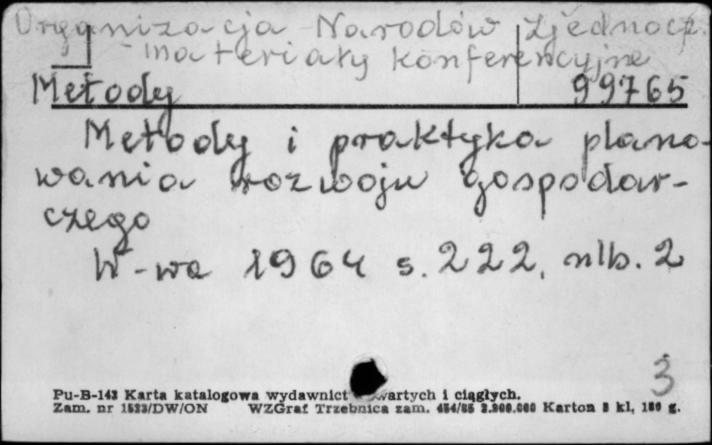 Organizacja Narodów Zjednocz.
- materiały konferencyjne
Metody 99765
Metody i praktyka plano-
wania rozwoju gospodar-
czego
W-wa 1964 s. 222, nlb. 2
3
Pu-B-143 Karta katalogowa wydawnict wartych i ciągłych.
Zam. nr 1523/DW/ON WZGraf Trzebnica zam. Karton kl, g.